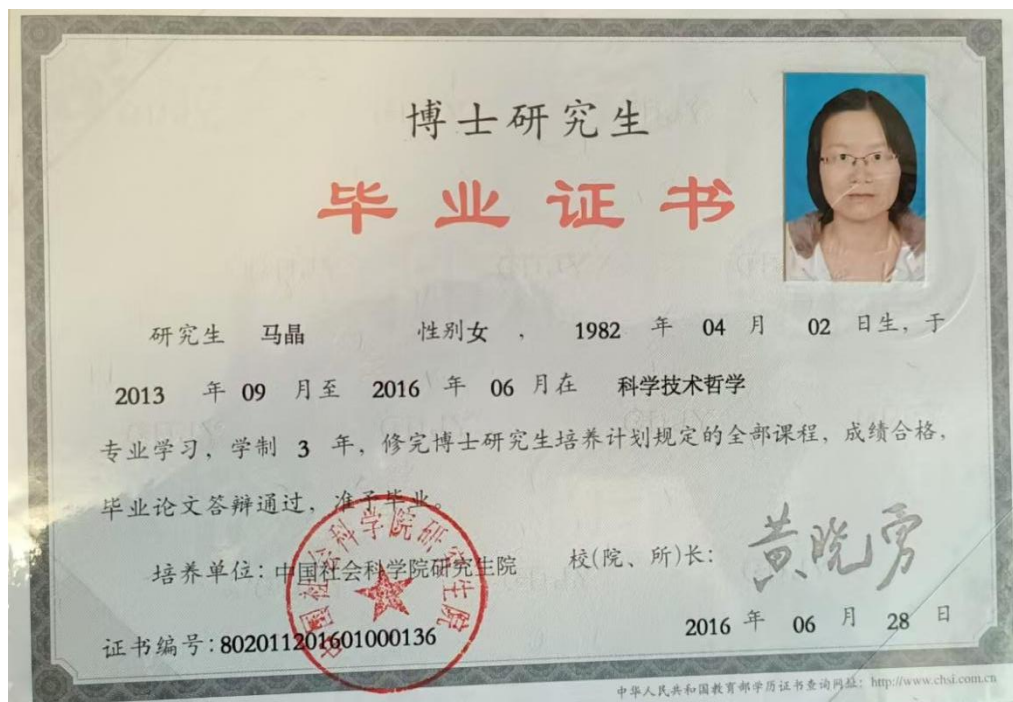 博士研究生
毕业证书
研究生 马晶 性别女 , 1982 年 04 月 02 日生, 于
2013 年 09 月至 2016 年 06 月在 科学技术哲学
专业学习, 学制 3 年, 修完博士研究生培养计划规定的全部课程, 成绩合格,
毕业论文答辩通过, 准予毕业。
培养单位: 中国社会科学院研究生院 校(院、所)长: 黄晓勇
中国社会科学院研究生院
证书编号: 802011201601000136 2016 年 06 月 28 日
中华人民共和国教育部学历证书查询网址: http://www.chsi.com.cn